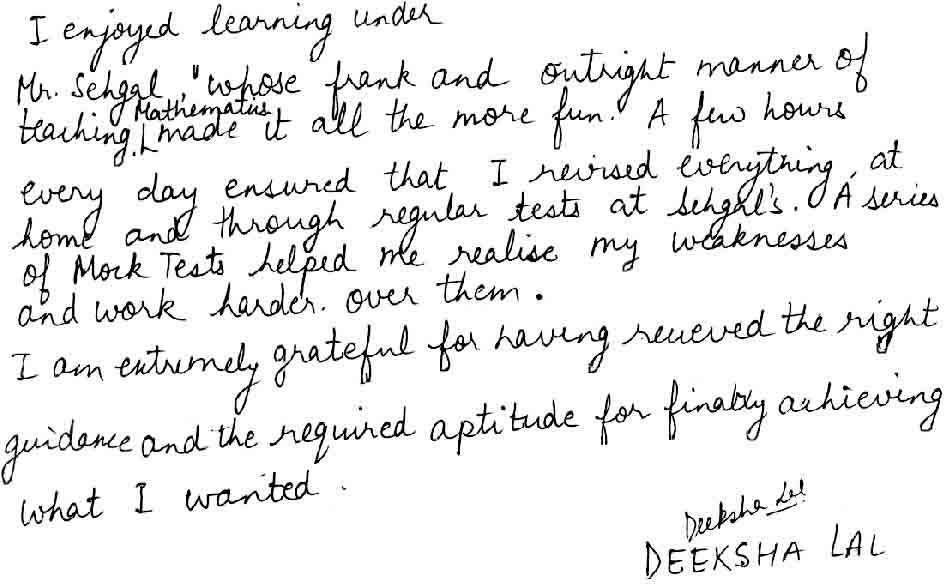 I enjoyed learning under
Mr. Sehgal, "whose frank and outright manner of
teaching Mathematics made it all the more fun." A few hours
every day ensured that I revised everything at
home and through regular tests at Sehgal's. A series
of Mock Tests helped me realise my weaknesses
and work harder. over them.
I am extremely grateful for having recieved the right
guidance and the required aptitude for finally achieving
what I wanted.
Deeksha Lal
DEEKSHA LAL